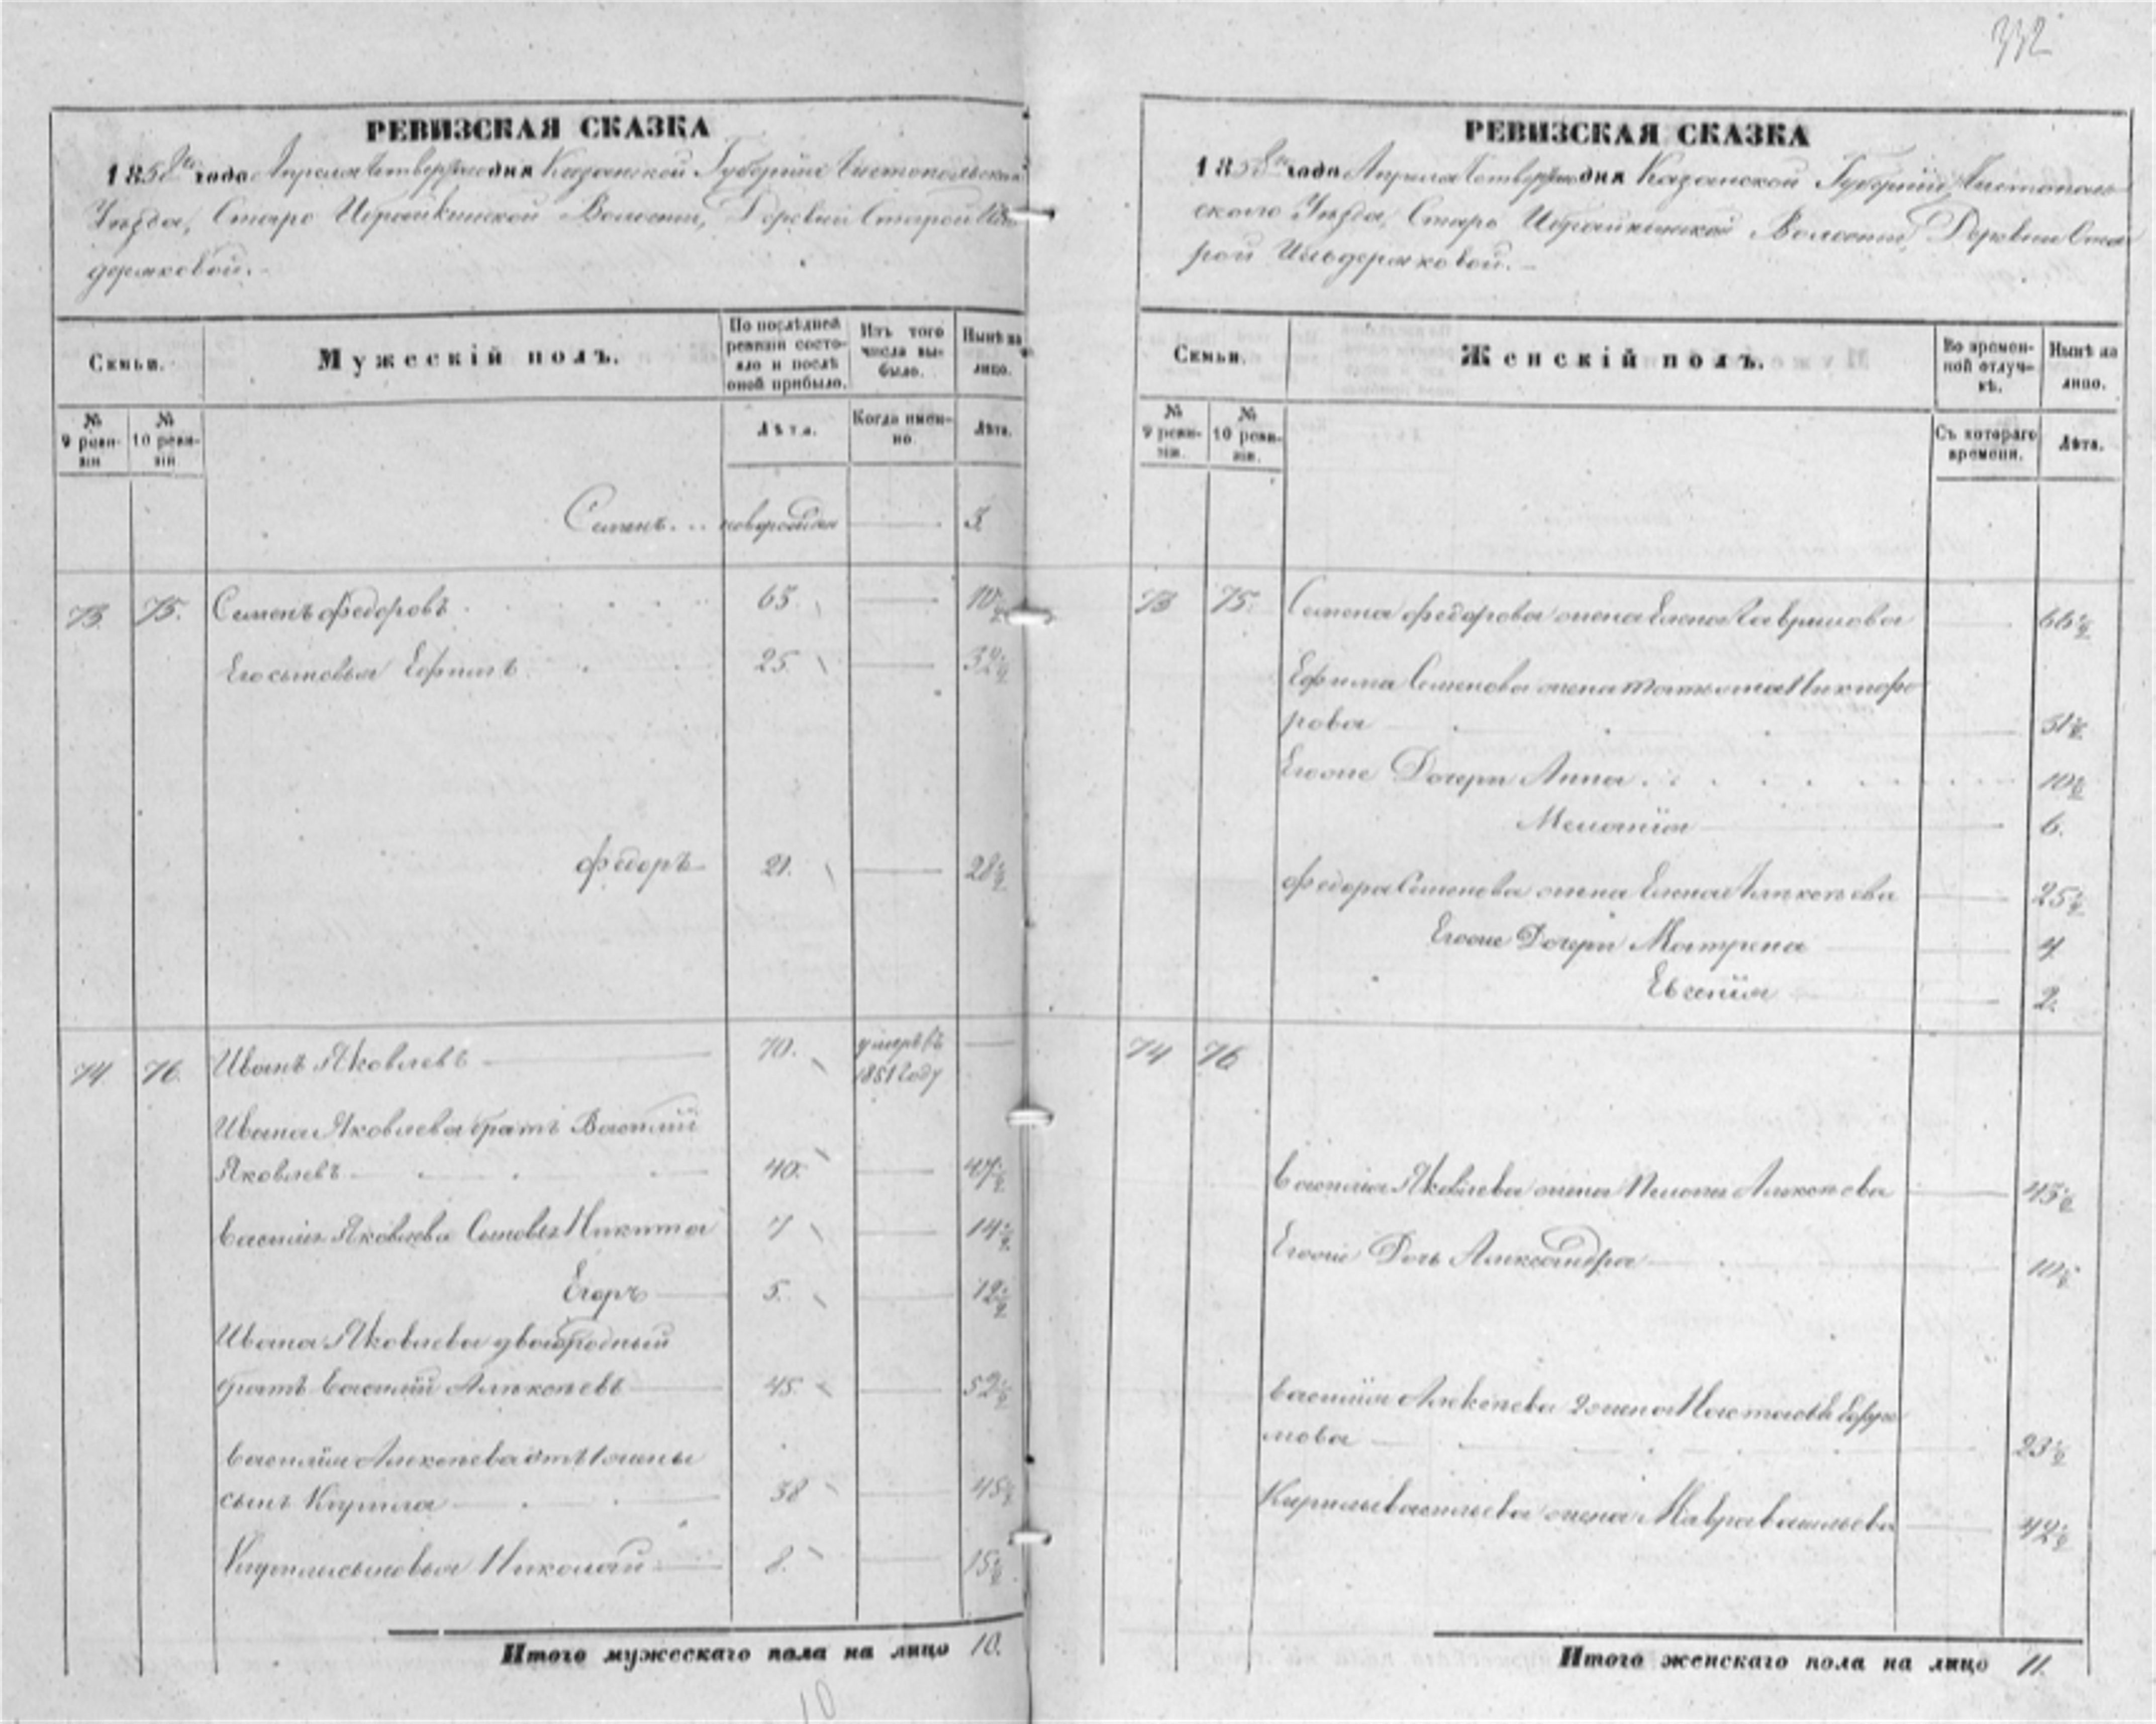 332
РЕВИЗСКАЯ СКАЗКА
1858го года Апреля Четвертаго дня Казанской Губернiи Чистопольскаго
Уѣзда, Старо Ибрайкинской Волости, Деревни Старой
деряковой.
Семьи.
Мужескiй полъ.
По послѣдней ревизiи состояло и послѣ оной прибыло.
Изъ того числа выбыло.
Нынѣ на лицо.
№ 9 ревизiи
№ 10 ревизiи
Лѣта.
Когда именно.
Лѣта.
Семенъ новорожден
73. 75. Семенъ Федоровъ 65.
Его сыновья Ефимъ 25 32½
Федоръ 21. 28½
74. 76. Иванъ Яковлевъ 70. умеръ въ
1851 году
Ивана Яковлева братъ Василiй
Яковлевъ 40. 47½
Василiя Яковлева Сыновья Никита 7 14½
Егоръ 5. 12½
Ивана Яковлева двоюродный
братъ Василiй Алексѣевъ 45 52½
Василiя Алексѣева отъ 1 жены
сынъ Кирила 38 45½
Кирилы сыновья Николай 8. 15½
Итого мужескаго пола на лицо 10.
10
РЕВИЗСКАЯ СКАЗКА
1858го года Апреля Четвертаго дня Казанской Губернiи Чистополь
скаго Уѣзда, Старо Ибрайкинской Волости, Деревни Ста
рой Ильдеряковой.
Семьи.
Женскiй полъ.
Во временной отлучкѣ.
Нынѣ на лицо.
№ 9 ревизiи.
№ 10 ревизiи.
Съ котораго времени.
Лѣта.
73 75. Семена Федорова жена Елена Гаврилова 66½
Ефима Семенова жена Татьяна Никифо
рова 31½
Егоже Дочери Анна 10½
Меланiя 6.
Федора Семенова жена Елена Алексѣева 25½
Егоже Дочери Матрена 4
Евгенiя 2.
74 76
Василiя Яковлева жена Алексѣева 45½
Егоже Дочь Александра 10½
Василiя Алексѣева 2 жена Настасья Ефре
мова 23½
Кирилы Васильева жена Мавра Васильева 42½
Итого женскаго пола на лицо 11.